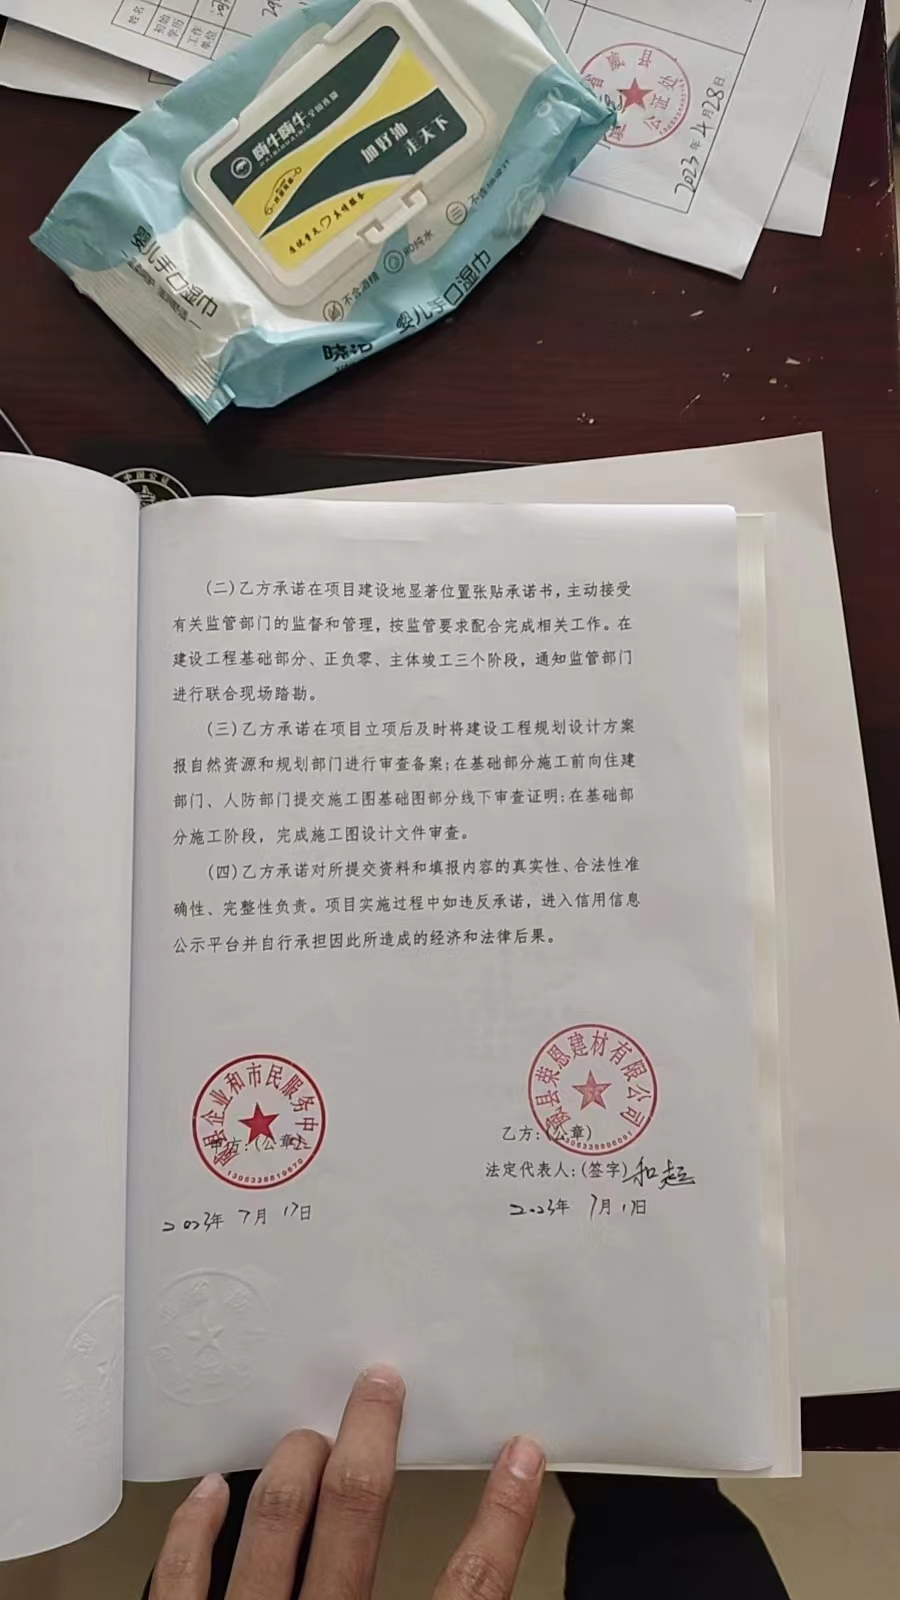 姓名
初始
学历
工作
单位
省威县
公证处
2023年4月28日
嗨牛嗨牛
加好油
走天下
婴儿手口湿巾
不含酒精
RO纯水
婴儿手口湿巾
(二)乙方承诺在项目建设地显著位置张贴承诺书，主动接受
有关监管部门的监督和管理，按监管要求配合完成相关工作。在
建设工程基础部分、正负零、主体竣工三个阶段，通知监管部门
进行联合现场踏勘。
(三)乙方承诺在项目立项后及时将建设工程规划设计方案
报自然资源和规划部门进行审查备案;在基础部分施工前向住建
部门、人防部门提交施工图基础图部分线下审查证明;在基础部
分施工阶段，完成施工图设计文件审查。
(四)乙方承诺对所提交资料和填报内容的真实性、合法性准
确性、完整性负责。项目实施过程中如违反承诺，进入信用信息
公示平台并自行承担因此所造成的经济和法律后果。
威县企业和市民服务中心
甲方：(公章)
2023年 7月 17日
威县荣恩建材有限公司
乙方：(公章)
法定代表人：(签字)
2023年 7月17日